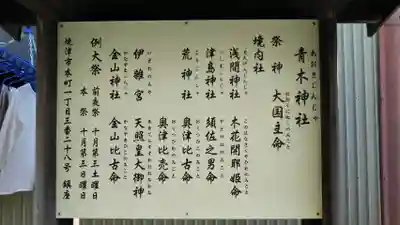 青木神社
あおきじんじゃ
祭神 大国主命
境内社
浅間神社 木花開耶姫命
津島神社 須佐之男命
荒神社 奥津比古命
奥津比売命
伊雜宮 天照皇大御神
金山神社 金山比古命
例大祭 前夜祭 十月第三土曜日
本祭 十月第三日曜日
焼津市本町一丁目三番二十八号 鎮座